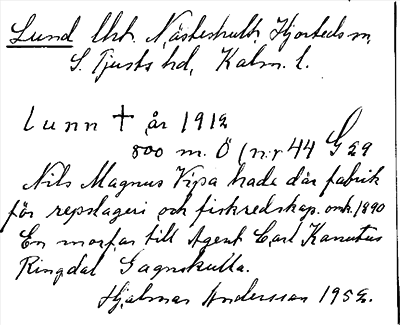 Lund lht. Näshult. Hjorteds sn,
S. Tjusts hd, Kalm. l.
lunn † år 1912
800 m. Ö (nr 44 G 29
Nils Magnus Vipa hade där fabrik
för repslageri och fiskredskap. omk. 1890
En morfar till Agent Carl Kanutus
Ringdal Gagnskulla.
Hjalmar Andersson 1952.